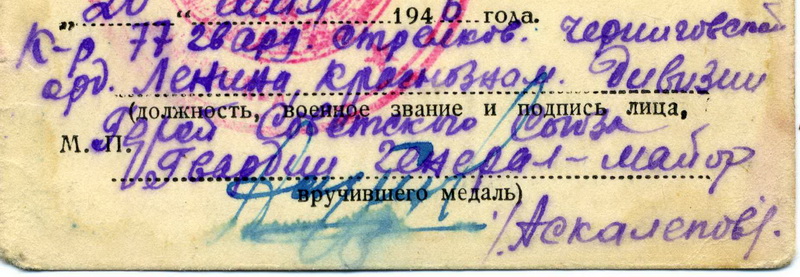 „20“ мая 1946 года.
К-р 77 гвард. стрелков. Черниговской
орд. Ленина Краснознам. дивизии
(должность, военное звание и подпись лица,
Герой Советского Союза
М. П. Гвардии Генерал-майор
вручившего медаль)
/Аскалепов/.